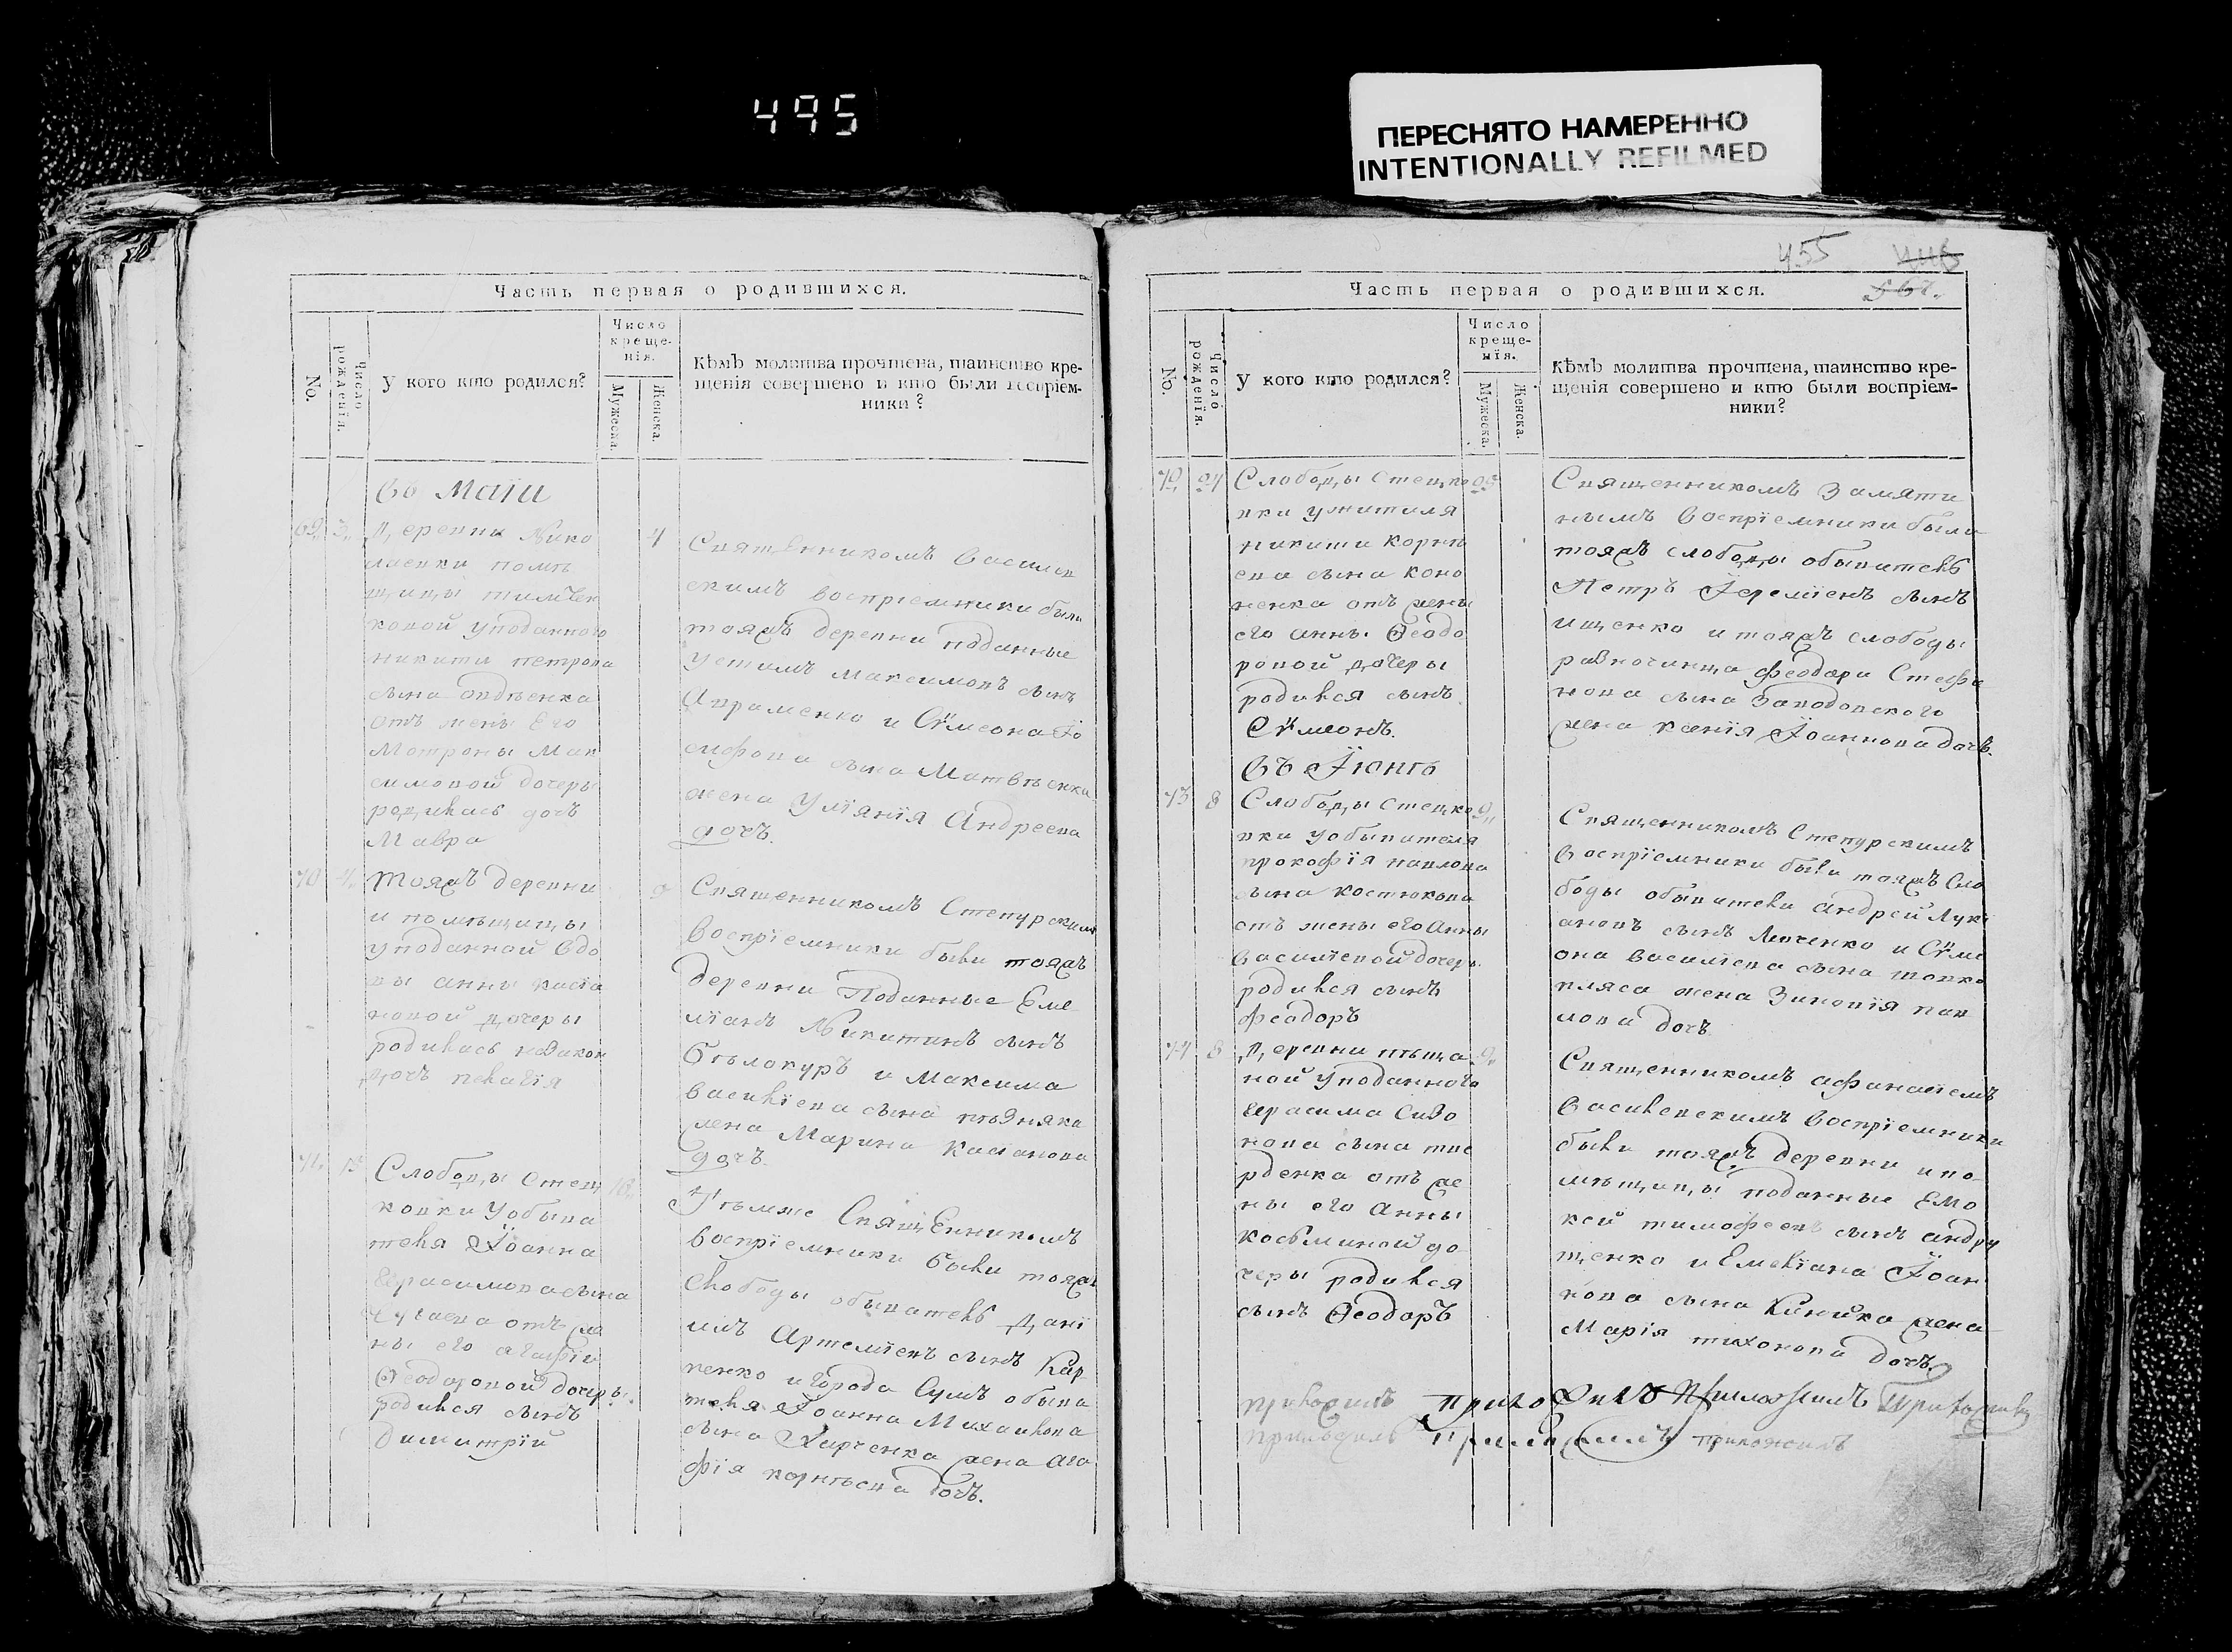 495
ПЕРЕСНЯТО НАМЕРЕННО
INTENTIONALLY REFILMED
Часть первая о родившихся.
No.
Число рожденія.
У кого кто родился?
Число
креще-
нія.
Мужеска.
Женска.
Кѣмъ молитва прочтена, таинство кре-
щенія совершено и кто были воспріем-
ники?
Во Маіи
69. 3.
Деревни Нико
лаевки помѣ
щицы Тимчен
ковой уподанного
никиты петрова
сына
отъ жены его
Мотроны Мак
симовой дочеры
родилась дочъ
Мавра
4
Священникомъ Василев
скимъ воспріемники были
тояжъ деревни подданные
устимъ максимовъ сынъ
Авраменко и Сѵмеона Іо
сифова сына Матвѣенка
жена Уліянія Андреева
дочъ.
70 4.
Тояжъ деревни
и помѣщицы
уподанной вдо
вы анны касіа
новой дочеры
родилась незакон
дочъ пелагія
9
Священникомъ Степурскимъ
воспріемники были тояжъ
деревни Поданные Еме
ліанъ Никитинъ сынъ
Бѣлокуръ и Максима
василіева сына пѣзняка
жена Марина Касіанова
дочъ.
71. 15
Слободы Стец
ковки уобыва
теля Іоанна
Герасимова сына
Чугаева отъ же
ны его агафіи
Ѳеодоровой дочеры
родился сынъ
Димитрій
18.
Тѣмже Священникомъ
воспріемники были тояжъ
слободы обыватель Дані
илъ Артеміевъ сынъ Кар
пенко и города Сумъ обыва
теля Іоанна Михаилова
сына Харченка жена Ага
фія корнѣева дочъ.
455
567.
Часть первая о родившихся.
No.
Число рожденія.
У кого кто родился?
Число
креще-
нія.
Мужеска.
Женска.
Кѣмъ молитва прочтена, таинство кре-
щенія совершено и кто были воспріем-
ники?
72. 24
Слободы Стецко
вки ужителя
никиты корнѣ
ева сына коно
ненка отъ жены
его анны Ѳеодо
ровой дочеры
родился сынъ
Сѵмеонъ.
Священникомъ Замяти
нымъ воспріемники были
тояжъ слободы обыватель
Петръ Іереміевъ сынъ
ищенко и тояжъ слободы
разночинца феодора Стефа
нова сына Заводовского
жена ксенія Іоаннова дочь.
Въ Іюнѣ
73 8
Слободы Стецко
вки уобывателя
прокофія павлова
сына костюкова
отъ жены его Анны
василіевой дочеры
родился сынъ
феодоръ
9.
Священникомъ Степурскимъ
воспріемники были тояжъ Сло
боды обыватели андрей Луки
ановъ сынъ Левченко и Сѵме
она василіева сына топко
пляса жена Зиновія пав
лова дочъ
74 8
Деревни пѣща
ной уподанного
Герасима Сидо
рова сына тве
рденка отъ же
ны его Анны
косьминой до
черы родился
сынъ Ѳеодоръ
9.
Священникомъ афанасіемъ
Василевскимъ воспріемники
были тояжъ деревни и по
мѣщицы поданные Емо
кей тимофеевъ сынъ андру
щенко и Емеліана Іоан
нова сына жена
Марія тихонова дочъ.
приложилъ